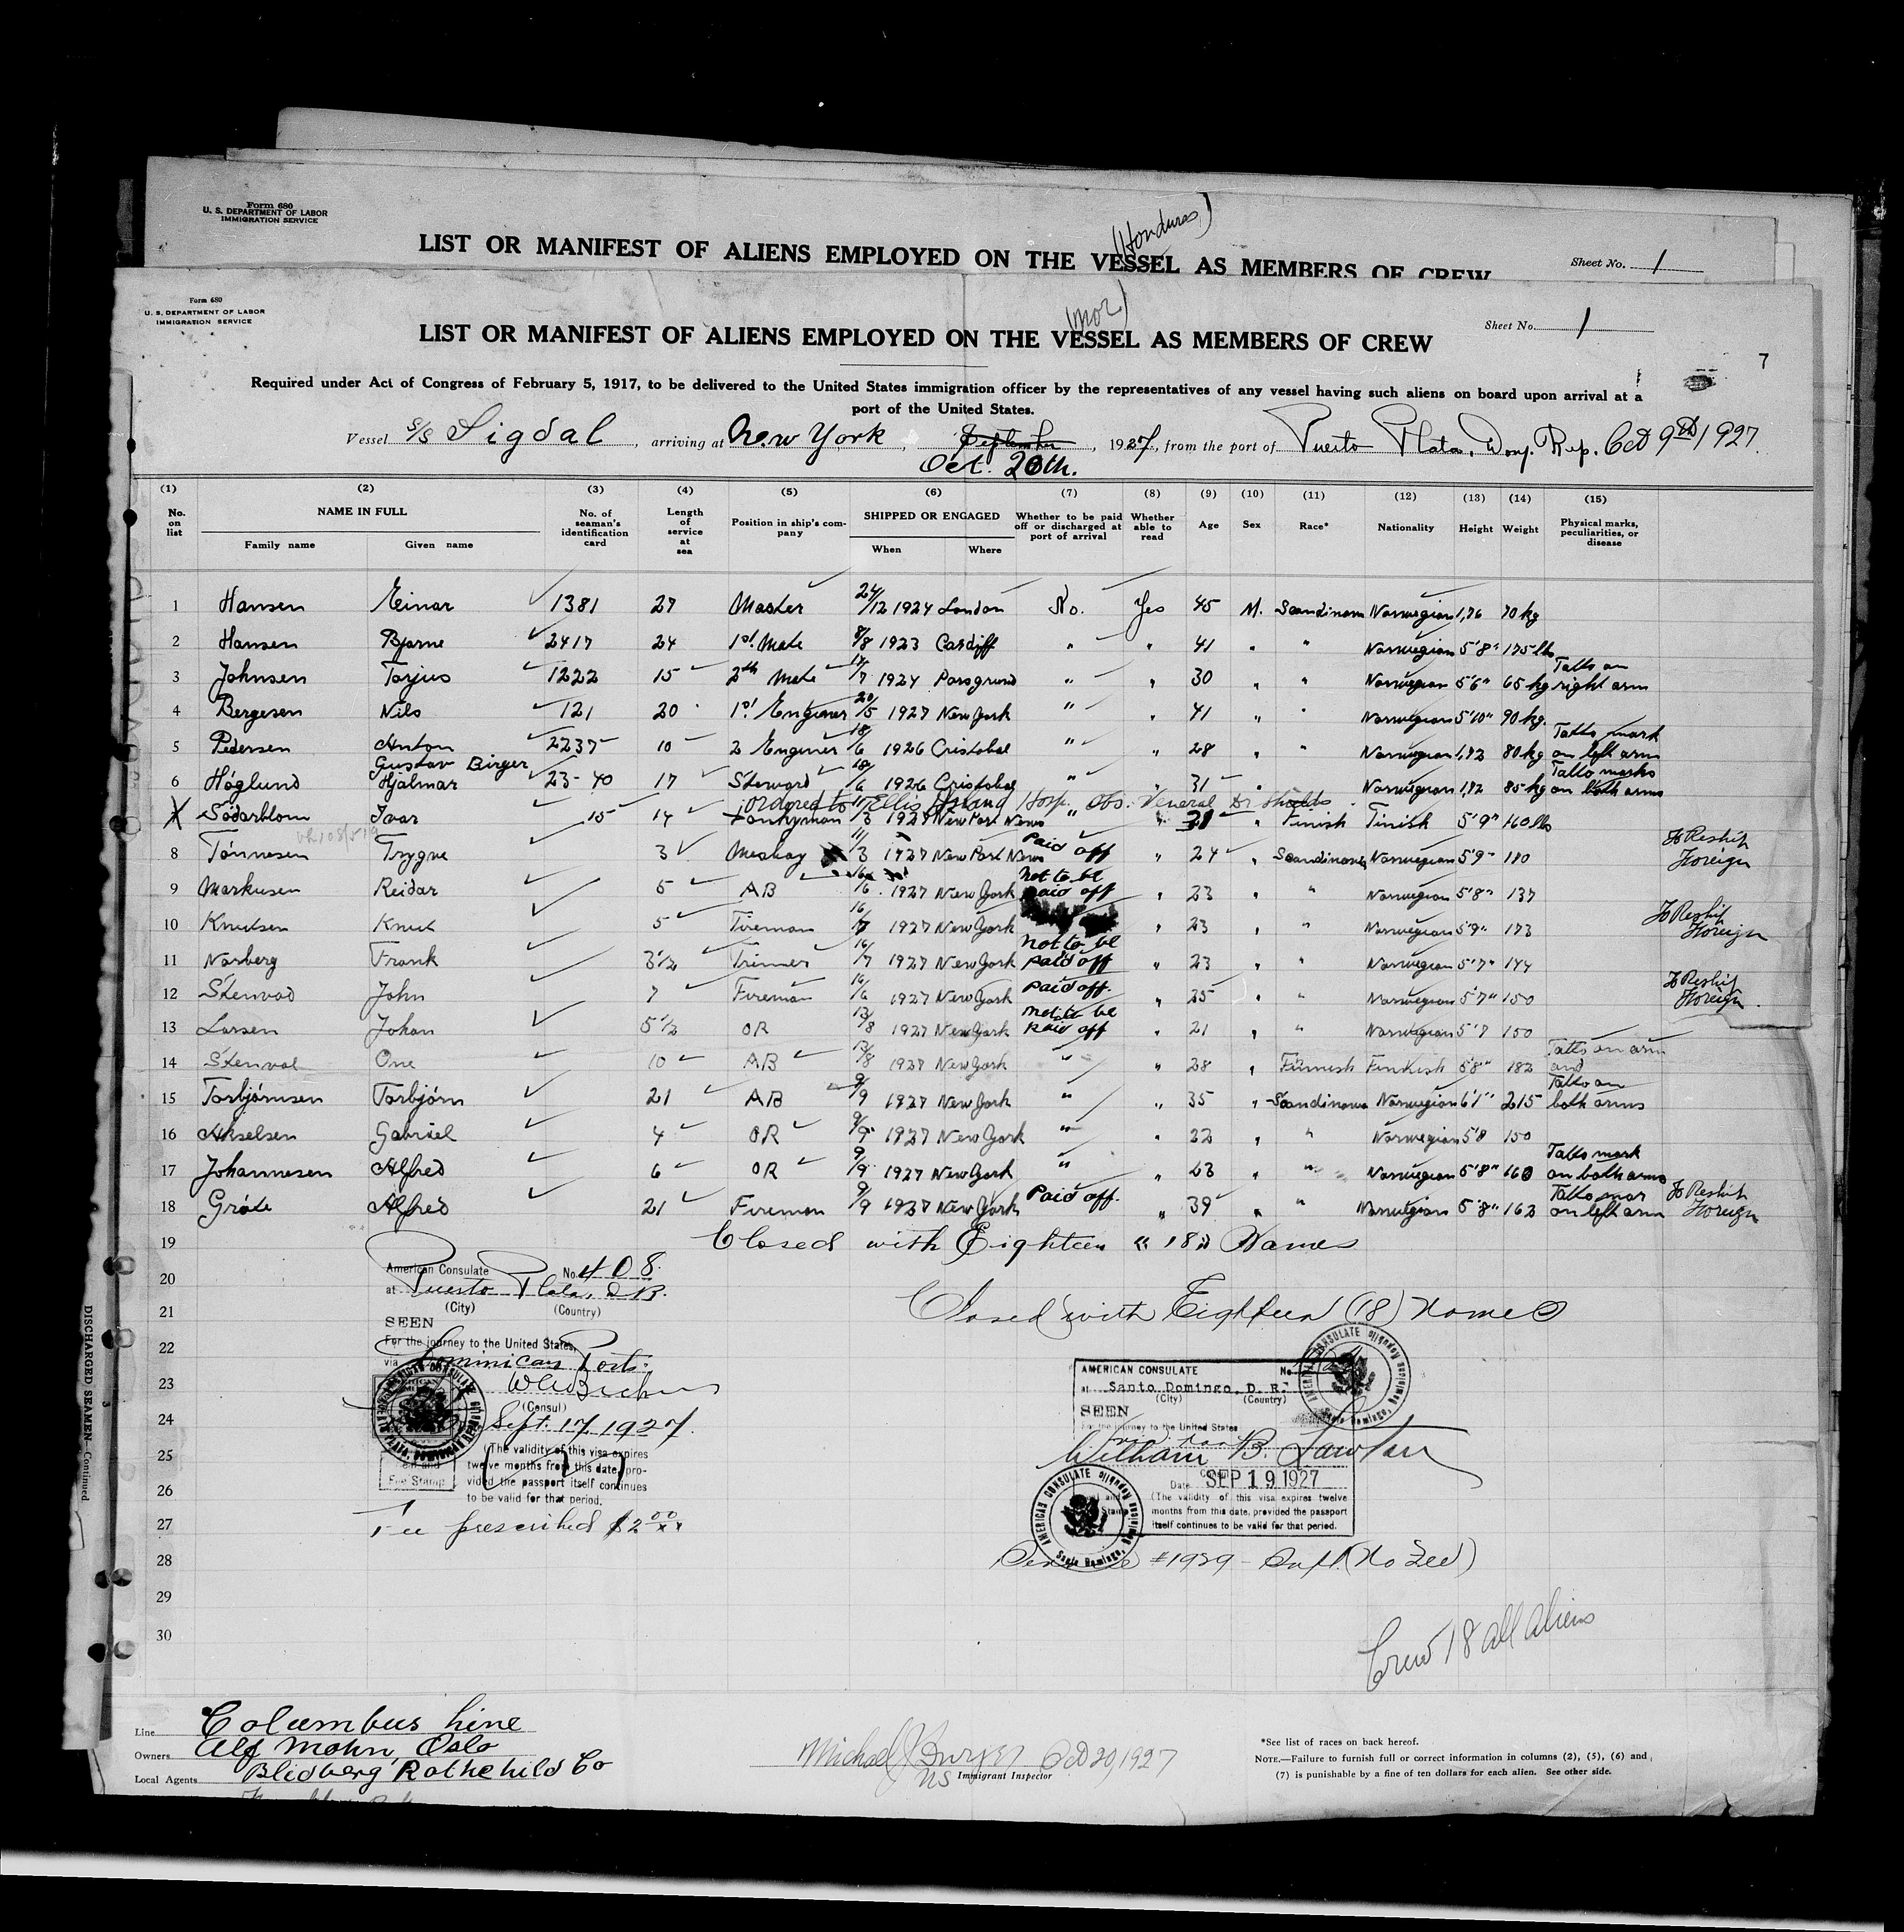 Form 680
U. S. DEPARTMENT OF LABOR
IMMIGRATION SERVICE
(Honduras)
LIST OR MANIFEST OF ALIENS EMPLOYED ON THE VESSEL AS MEMBERS OF CREW
Sheet No. 1
Form 680
U. S. DEPARTMENT OF LABOR
IMMIGRATION SERVICE
(Nor)
LIST OR MANIFEST OF ALIENS EMPLOYED ON THE VESSEL AS MEMBERS OF CREW
Sheet No. 1
7
Required under Act of Congress of February 5, 1917, to be delivered to the United States immigration officer by the representatives of any vessel having such aliens on board upon arrival at a
port of the United States.
Vessel S/S Sigdal, arriving at New York, September, 1927, from the port of Puerto Plata, Dom. Rep. Oct 9th 1927.
Oct. 20th.
(1) (2) (3) (4) (5) (6) (7) (8) (9) (10) (11) (12) (13) (14) (15)
No. on list NAME IN FULL Family name Given name No. of seaman's identification card Length of service at sea Position in ship's company SHIPPED OR ENGAGED When Where Whether to be paid off or discharged at port of arrival Whether able to read Age Sex Race* Nationality Height Weight Physical marks, peculiarities, or disease
1 Hansen Einar 1381 27 Master 24/12 1924 London No. Yes 45 M. Scandinavn Norwegian 1,76 70 kg
2 Hansen Bjarne 2417 24 1st Mate 8/8 1923 Cardiff " " 41 " " Norwegian 5'8" 175 lbs
3 Johnsen Torjus 1222 15 2th Mate 17/7 1924 Porsgrund " " 30 " " Norwegian 5'6" 65 kg Tatto on right arm
4 Bergesen Nils 121 20 1st Enginer 20/5 1927 New York " " 41 " " Norwegian 5'10" 90 kg.
5 Pedersen Anton 2237 10 2 Enginer 18/6 1926 Cristobal " " 28 " " Norwegian 1,72 80 kg Tatto mark on left arm
6 Høglund Gustav Birger Hjalmar 23-40 17 Steward 18/6 1926 Cristobal " " 31 " " Norwegian 1,72 85 kg Tatto marks on both arms
ordered to Ellis Island Hosp. Obs. Veneral Dr Shields
X Söderblom Ivar 15 14 Donkyman 11/3 1927 New Port News " " 31 " Finish Finish 5'9" 160 lbs
8 Tønnesen Trygve 3 Messboy 11/3 1927 New Port News Paid off " 24 " Scandinavn Norwegian 5'9" 180 To Reship Foreign
9 Markusen Reidar 5 AB 16/6 1927 New York not to be paid off " 23 " " Norwegian 5'8" 137
10 Knutsen Knut 5 Fireman 16/7 1927 New York " 23 " " Norwegian 5'9" 173 To Reship Foreign
11 Norberg Frank 3½ Trimmer 16/7 1927 New York not to be paid off " 23 " " Norwegian 5'7" 144
12 Stenvad John 7 Fireman 16/6 1927 New York Paid off. " 25 " " Norwegian 5'7" 150 To Reship Foreign
13 Larsen Johan 5½ OR 13/8 1927 New York not to be paid off " 21 " " Norwegian 5'7 150
14 Stenval One 10 AB 13/8 1927 New York " " 28 " Finnish Finnish 5'8" 182 Tatto on arm and
15 Torbjørnsen Torbjørn 21 AB 9/9 1927 New York " " 35 " Scandinavn Norwegian 6'1" 215 Tatto on both arms
16 Akselsen Gabriel 4 OR 9/9 1927 New York " " 22 " " Norwegian 5'8 150
17 Johannesen Alfred 6 OR 9/9 1927 New York " " 23 " " Norwegian 5'8" 160 Tatto mark on both arms
18 Grøte Alfred 21 Fireman 9/9 1927 New York Paid off. " 39 " " Norwegian 5'8" 162 Tatto mar on left arm To Reship Foreign
19 Closed with Eighteen "18" Names
20
21 Closed with Eighteen (18) names
22
23
24
25
26
27
28
29
30
American Consulate No. 408.
at Puerto Plata, D.R.
(City) (Country)
SEEN
For the journey to the United States,
via Dominican Ports.
(Consul)
Sept. 17, 1927.
(The validity of this visa expires
twelve months from this date, provided the passport itself continues
to be valid for that period.
Fee Stamp
Fee prescribed $2.00
AMERICAN CONSULATE No.
at Santo Domingo, D. R.
(City) (Country)
SEEN
For the journey to the United States
William B. Lawton
Date SEP 19 1927
(The validity of this visa expires twelve
months from this date, provided the passport
itself continues to be valid for that period.
AMERICAN CONSULATE Santo Domingo, Dominican Republic
Service #1929 - (No Fee)
Crew 18 all aliens
DISCHARGED SEAMEN—Continued
Line Columbus Line
Owners Alf Mohn, Oslo
Local Agents Blidberg Rothchild Co
Michael J. Oct 20, 1927
Immigrant Inspector
*See list of races on back hereof.
NOTE.—Failure to furnish full or correct information in columns (2), (5), (6) and
(7) is punishable by a fine of ten dollars for each alien. See other side.